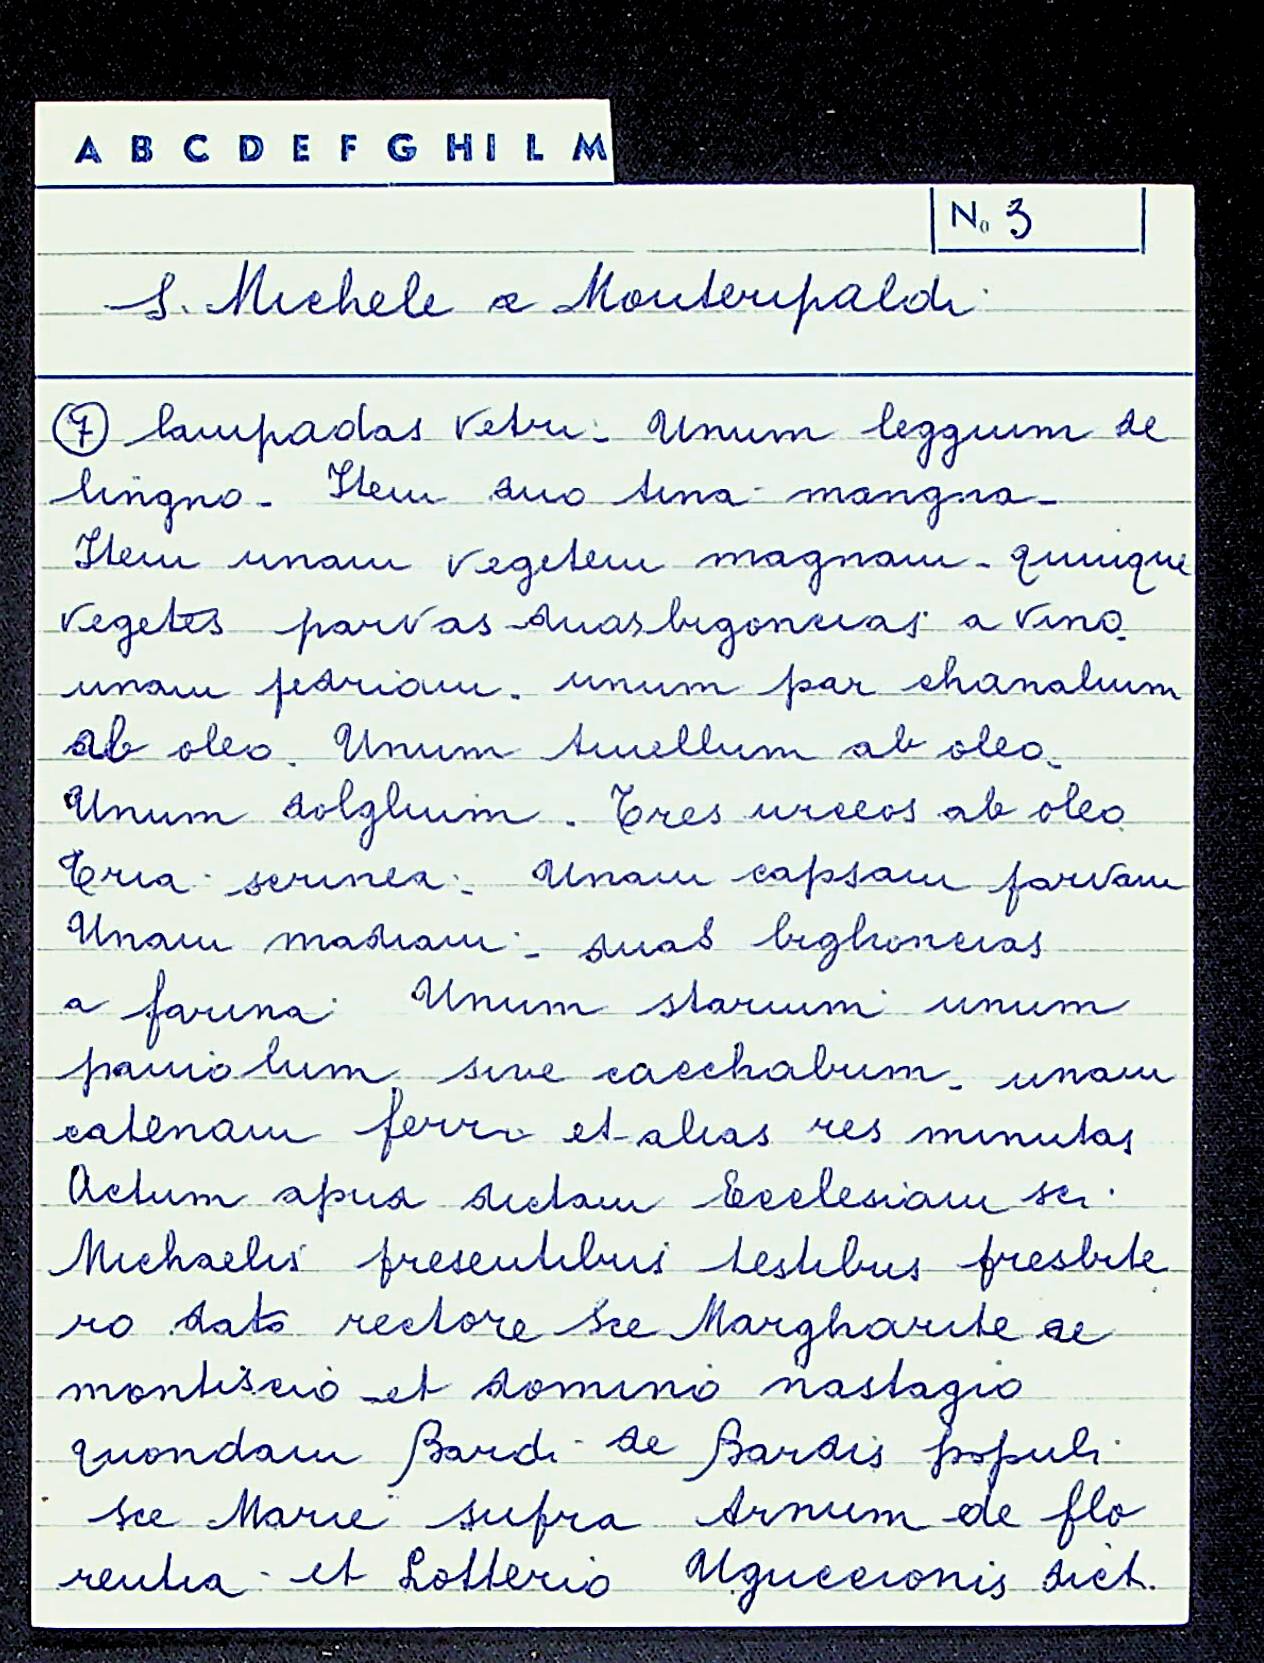 A B C D E F G H I L M
No 3
S. Michele a Monteripaldi
⑦ lampadas vetri - Unum leggium de
lingno - Item duo tina mangna -
Item unam vegetem magnam - quinque
vegetes parvas - duas bigoncias a vino
unam pedriam - unum par chanalium
ab oleo. Unum tinellum ab oleo -
Unum dolglium. Tres urceos ab oleo
Tria scrinea - Unam capsam parvam
Unam madiam - duas bighoncias
a farina Unum starium unum
paniolum sive cacchabum - unam
catenam ferri et alias res minutas
Actum apud dictam Ecclesiam sci.
Michaelis presentibus testibus presbite
ro dato rectore Sce Margharite de
montiscio et domino nastagio
quondam Bardi de Bardis populi
Sce Marie supra Arnum de flo
rentia et Lotterio Uguccionis dict.